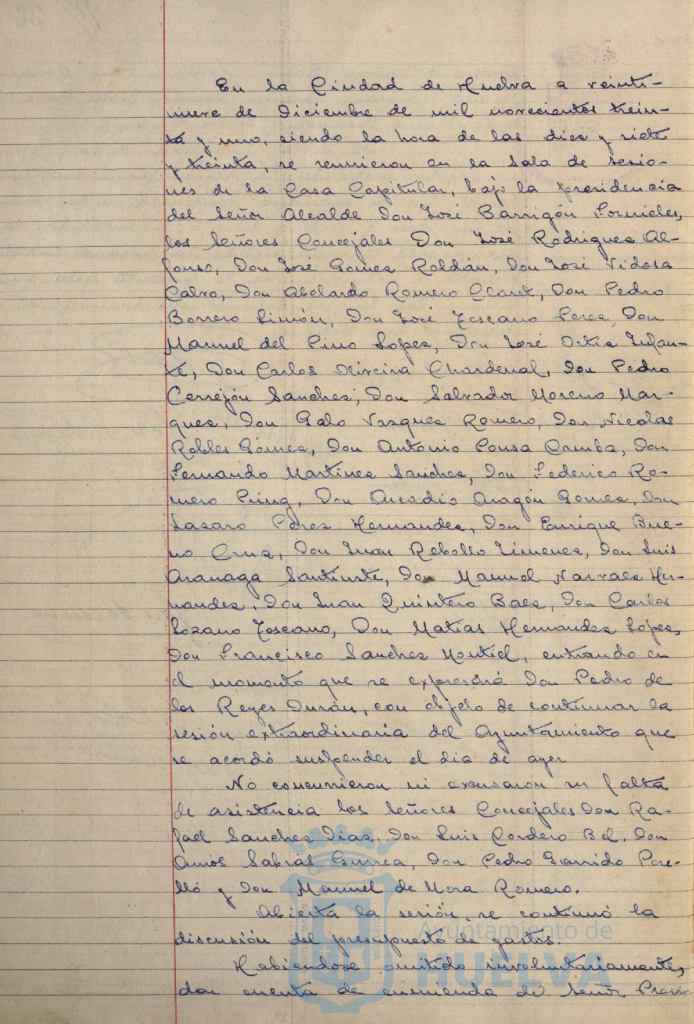 En la Ciudad de Huelva a veinti-
nueve de Diciembre de mil novecientos trein-
ta y uno, siendo la hora de las diez y siete
y treinta, se reunieron en la Sala de sesio-
nes de la Casa Capitular, bajo la presidencia
del Señor Alcalde Don José Barrigón Fornieles,
los Señores Concejales Don José Rodriguez Al-
fonso, Don José Gomez Roldán, Don José Vidosa
Calvo, Don Abelardo Romero Claret, Don Pedro
Borrero Limón, Don José Toscano Perez, Don
Manuel del Pino Lopez, Don José Ortiz Infan-
te, Don Carlos Oliveira Chardenal, Don Pedro
Cerrejón Sanchez, Don Salvador Moreno Mar-
quez, Don Galo Vazquez Romero, Don Nicolas
Robles Gómez, Don Antonio Pousa Camba, Don
Fernando Martinez Sanchez, Don Federico Ro-
mero Don Arcadio Aragón Gomez, Don
Lazaro Pérez Hernandez, Don Enrique Bue-
no Cruz, Don Juan Rebollo Jimenez, Don Luis
Aranaga Don Manuel Narvaez Her-
nandez, Don Juan Quintero Baez, Don Carlos
Lozano Toscano, Don Matias Hernandez Lopez,
Don Francisco Sanchez Montiel, entrando en
el momento que se expresará Don Pedro de
los Reyes Durán, con objeto de continuar la
sesión extraordinaria del Ayuntamiento que
se acordó suspender el dia de ayer
No concurrieron ni excusaron su falta
de asistencia los Señores Concejales Don Ra-
fael Sanchez Diaz, Don Luis Cordero Bel, Don
Amós Sabrás Gurrea, Don Pedro Garrido Pere-
lló y Don Manuel de Mora Romero.
Abierta la sesión, se continuó la
discusión del presupuesto de gastos.
Habiendose omitido involuntariamente,
dar cuenta de enmienda del Señor
Ayuntamiento de
HUELVA